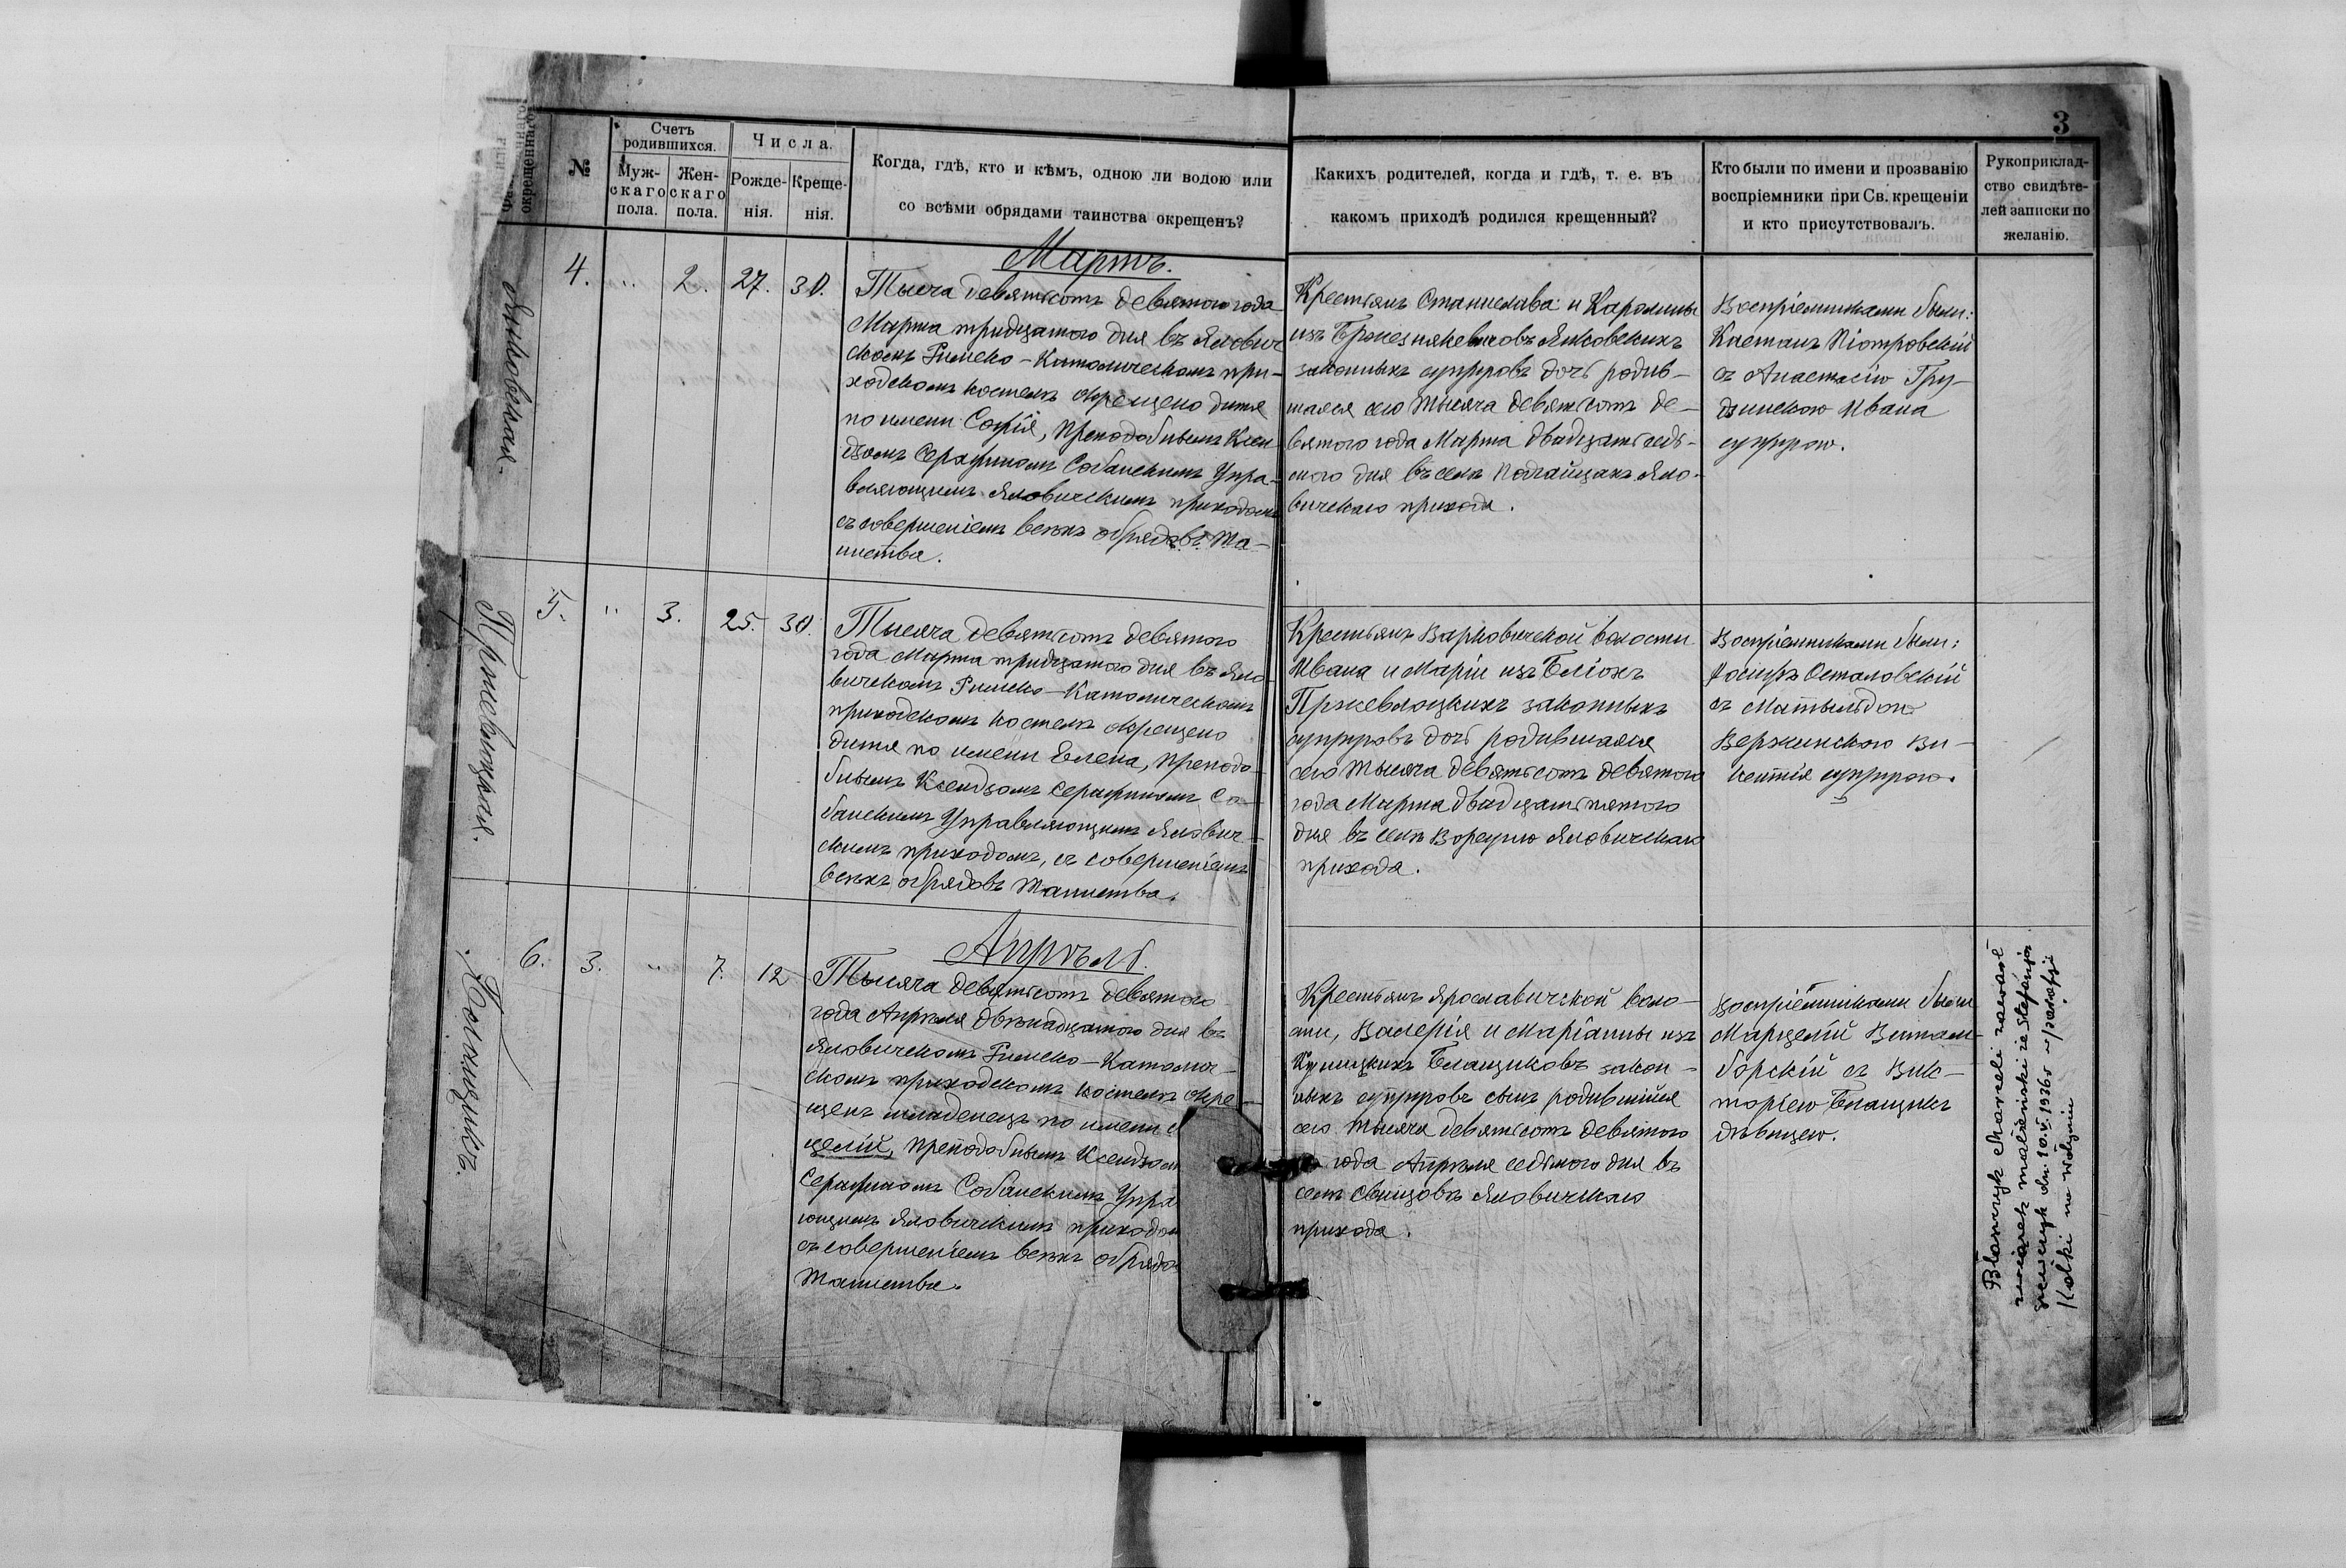 3
окрещеннаго
№
Счетъ родившихся.
Муж-
скаго
пола.
Жен-
скаго
пола.
Числа.
Рожде-
нія.
Креще-
нія.
Когда, гдѣ, кто и кѣмъ, одною ли водою или
со всѣми обрядами таинства окрещенъ?
Какихъ родителей, когда и гдѣ, т. е. въ
какомъ приходѣ родился крещенный?
Кто были по имени и прозванію
воспріемники при Св. крещеніи
и кто присутствовалъ.
Рукоприклад-
ство свидѣте-
лей записки по
желанію.
Мартъ.
4. " 2. 27. 30.
Тысяча девятьсотъ девятого года
Марта тридцатого дня въ Ялович
скомъ Римско-Католическомъ при-
ходскомъ костелѣ окрещено дитя
по имени Софія, преподобнымъ Ксен
дзомъ Серафимомъ Собанскимъ Упра-
вляющимъ Яловичскимъ приходомъ
съ совершеніемъ всѣхъ обрядовъ Та-
инства.
Крестьянъ Станислава и Каролины
изъ Янковскихъ
законныхъ супруговъ дочь родив-
шаяся сего тысяча девятьсотъ де-
вятого года Марта двадцать седь-
мого дня въ селѣ Подгайцахъ Яло-
вичскаго прихода.
Воспріемниками были:
Каетанъ Піотровскій
съ Анастасіею Гру-
дзинскою Ивана
супругою.
Янковская.
5. " 3. 25. 30.
Тысяча девятьсотъ девятого
года Марта тридцатого дня въ Яло-
вичскомъ Римско-Католическомъ
приходскомъ костелѣ окрещено
дитя по имени Елена, преподо-
бнымъ Ксендзомъ Серафимомъ Со-
банскимъ Управляющимъ Ялович-
скимъ приходомъ, съ совершеніемъ
всѣхъ обрядовъ Таинства.
Крестьянъ Варковичской волости
Ивана и Маріи изъ
Пржевлоцкихъ законныхъ
супруговъ дочь родившаяся
сего тысяча девятьсотъ девятого
года Марта двадцать пятого
дня въ селѣ Яловичскаго
прихода.
Воспріемниками были:
Іосифъ Осталовскій
съ Матыльдою
Вержинскою Ви-
кентія супругою.
Пржевлоцкая.
Апрѣль.
6. 3. " 7. 12
Тысяча девятьсотъ девятого
года Апрѣля двѣнадцатого дня въ
Яловичскомъ Римско-Католич-
скомъ приходскомъ костелѣ окре-
щенъ младенецъ по имени
целій, преподобнымъ Ксендзом
Серафимомъ Собанскимъ Упра
ющимъ Яловичскимъ приходом
съ совершеніемъ всѣхъ обрядо
Таинства.
Крестьянъ Ярославичской воло-
сти, Валерія и Маріанны изъ
Блащиковъ закон-
ныхъ супруговъ сынъ родившійся
сего тысяча девятьсотъ девятого
года Апрѣля седьмого дня въ
селѣ Яловичскаго
прихода.
Воспріемниками были
Марцелій
съ Вик-
торіею Блащикъ
дѣвицею.
Блащикъ.
Błaszczyk Marceli zawarł
związek małżeński ze Stefanją
dn. 10.V.1936 r w parafji
Kołki na Wołyniu